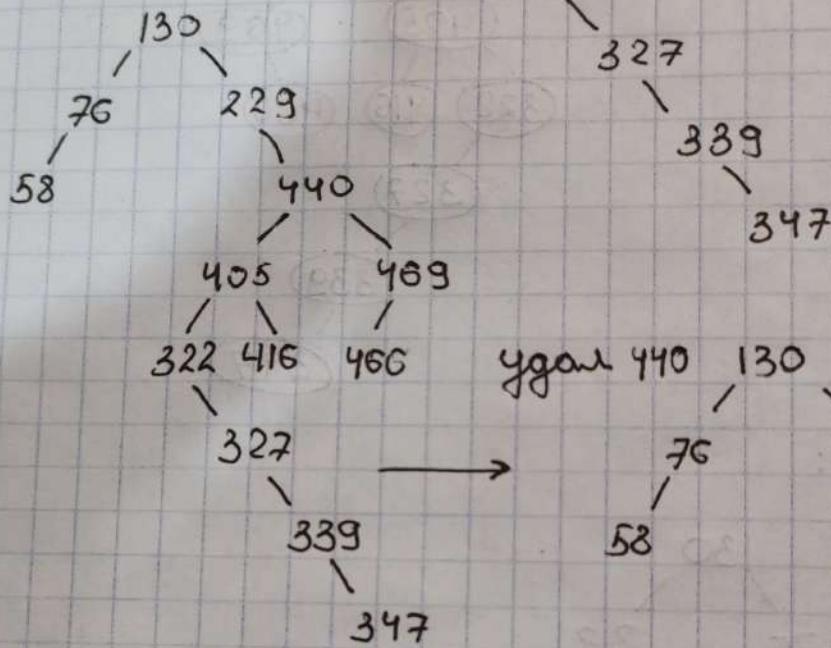 130
76 229
58 440
405 469
322 416 466
327
339
347
327
339
347
удал 440 130
76
58